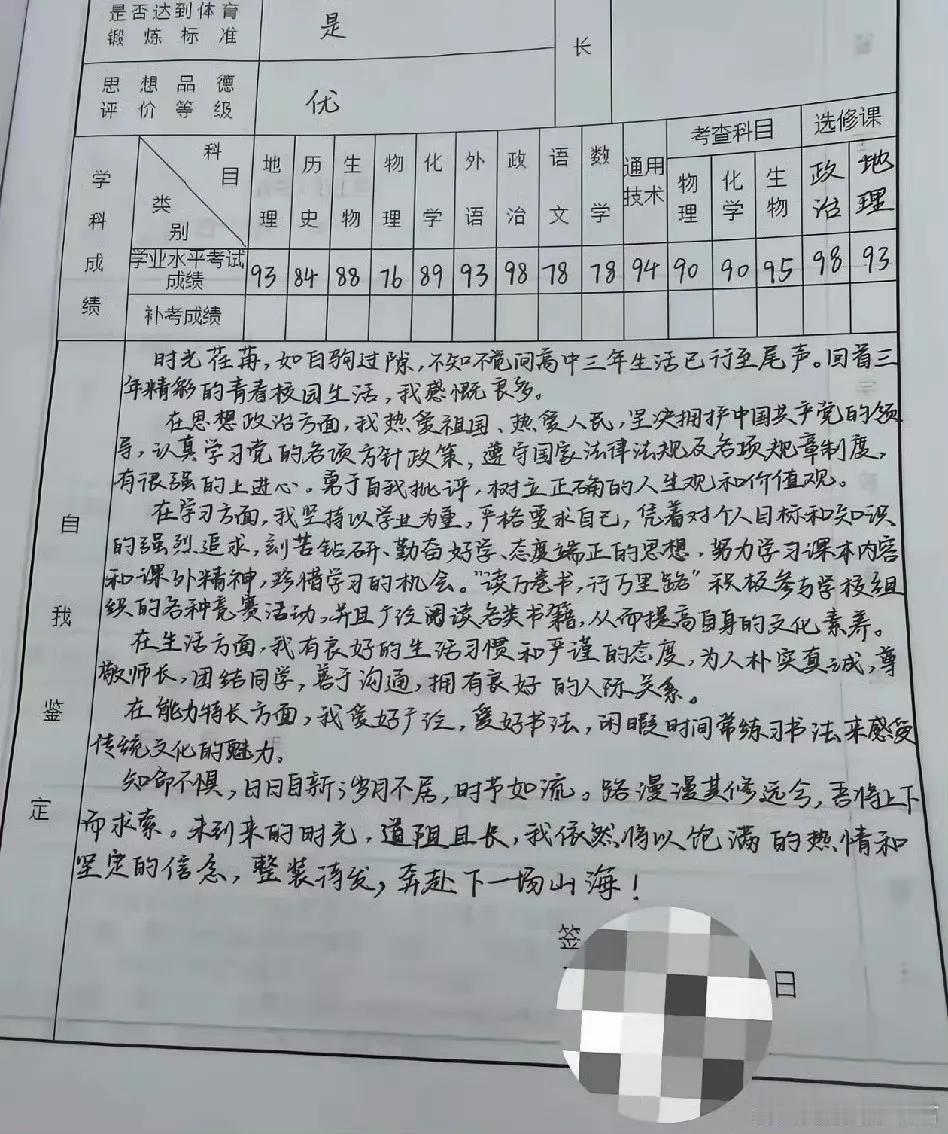 是否达到体育
锻炼标准
是
长
思想品德
评价等级
优
学科成绩
科目
类别
地理
历史
生物
物理
化学
外语
政治
语文
数学
通用技术
考查科目
物理
化学
生物
选修课
政治
地理
学业水平考试成绩
93 84 88 76 89 93 98 78 78 94 90 90 95 98 93
补考成绩
自我鉴定
时光荏苒，如白驹过隙，不知不觉间高中三年生活已行至尾声。回首三
年精彩的青春校园生活，我感慨良多。
在思想政治方面，我热爱祖国、热爱人民，坚决拥护中国共产党的领
导，认真学习党的各项方针政策，遵守国家法律法规及各项规章制度，
有很强的上进心。勇于自我批评，树立正确的人生观和价值观。
在学习方面，我坚持以学业为重，严格要求自己，凭着对个人目标和知识
的强烈追求，刻苦钻研、勤奋好学、态度端正的思想，努力学习课本内容
和课外精神，珍惜学习的机会。“读万卷书，行万里路”积极参与学校组
织的各种竞赛活动，并且广泛阅读各类书籍，从而提高自身的文化素养。
在生活方面，我有良好的生活习惯和严谨的态度，为人朴实真诚，尊
敬师长，团结同学，善于沟通，拥有良好的人际关系。
在能力特长方面，我爱好广泛，爱好书法，闲暇时间常练习书法来感受
传统文化的魅力。
知命不惧，日日自新；岁月不居，时节如流。路漫漫其修远兮，吾将上下
而求索。未到来的时光，道阻且长，我依然将以饱满的热情和
坚定的信念，整装待发，奔赴下一场山海！
签
日